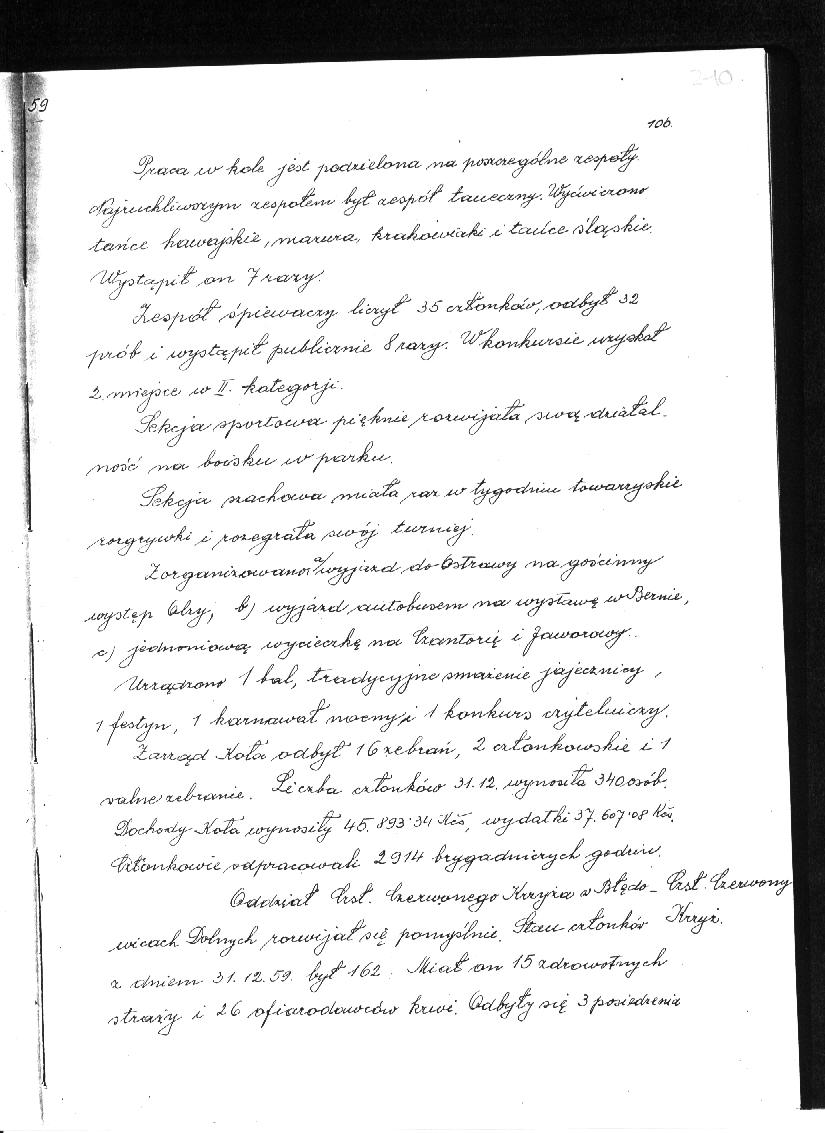 210.
59
106.
Praca w kole jest podzielona na poszczególne zespoły.
Najruchliwszym zespołem był zespół taneczny. Wyćwiczono
tańce hawajskie, mazura, krakowiaki i tańce śląskie.
Wystąpił on 7 razy.
Zespół śpiewaczy liczył 35 członków, odbył 32
prób i wystąpił publicznie 8 razy. W konkursie uzyskał
2. miejsce w II. kategorji.
Sekcja sportowa pięknie rozwijała swą działal-
ność na boisku w parku.
Sekcja szachowa miała raz w tygodniu towarzyskie
rozgrywki i rozegrała swój turniej.
Zorganizowano: a) wyjazd do Ostrawy na gościnny
występ Olzy, b) wyjazd autobusem na wystawę w Bernie,
c) jednoniową wycieczkę na Czantorię i Jaworowy.
Urządzono 1 bal, tradycyjne smażenie jajecznicy,
1 festyn, 1 karnawał nocny i 1 konkurs czytelniczy.
Zarząd Koła odbył 16 zebrań, 2 członkowskie i 1
walne zebranie. Liczba członków 31.12. wynosiła 340 osób.
Dochody Koła wynosiły 45.893·34 Kčs, wydatki 37.607·08 Kčs.
Członkowie odpracowali 2914 brygadniczych godzin.
Oddział Czsł. Czerwonego Krzyża w Błędo- Czsł. Czerwony
wicach Dolnych rozwijał się pomyślnie. Stan członków Krzyż.
z dniem 31.12.59. był 162. Miał on 15 zdrowotnych
straży i 26 ofiarodawców krwi. Odbyły się 3 posiedzenia